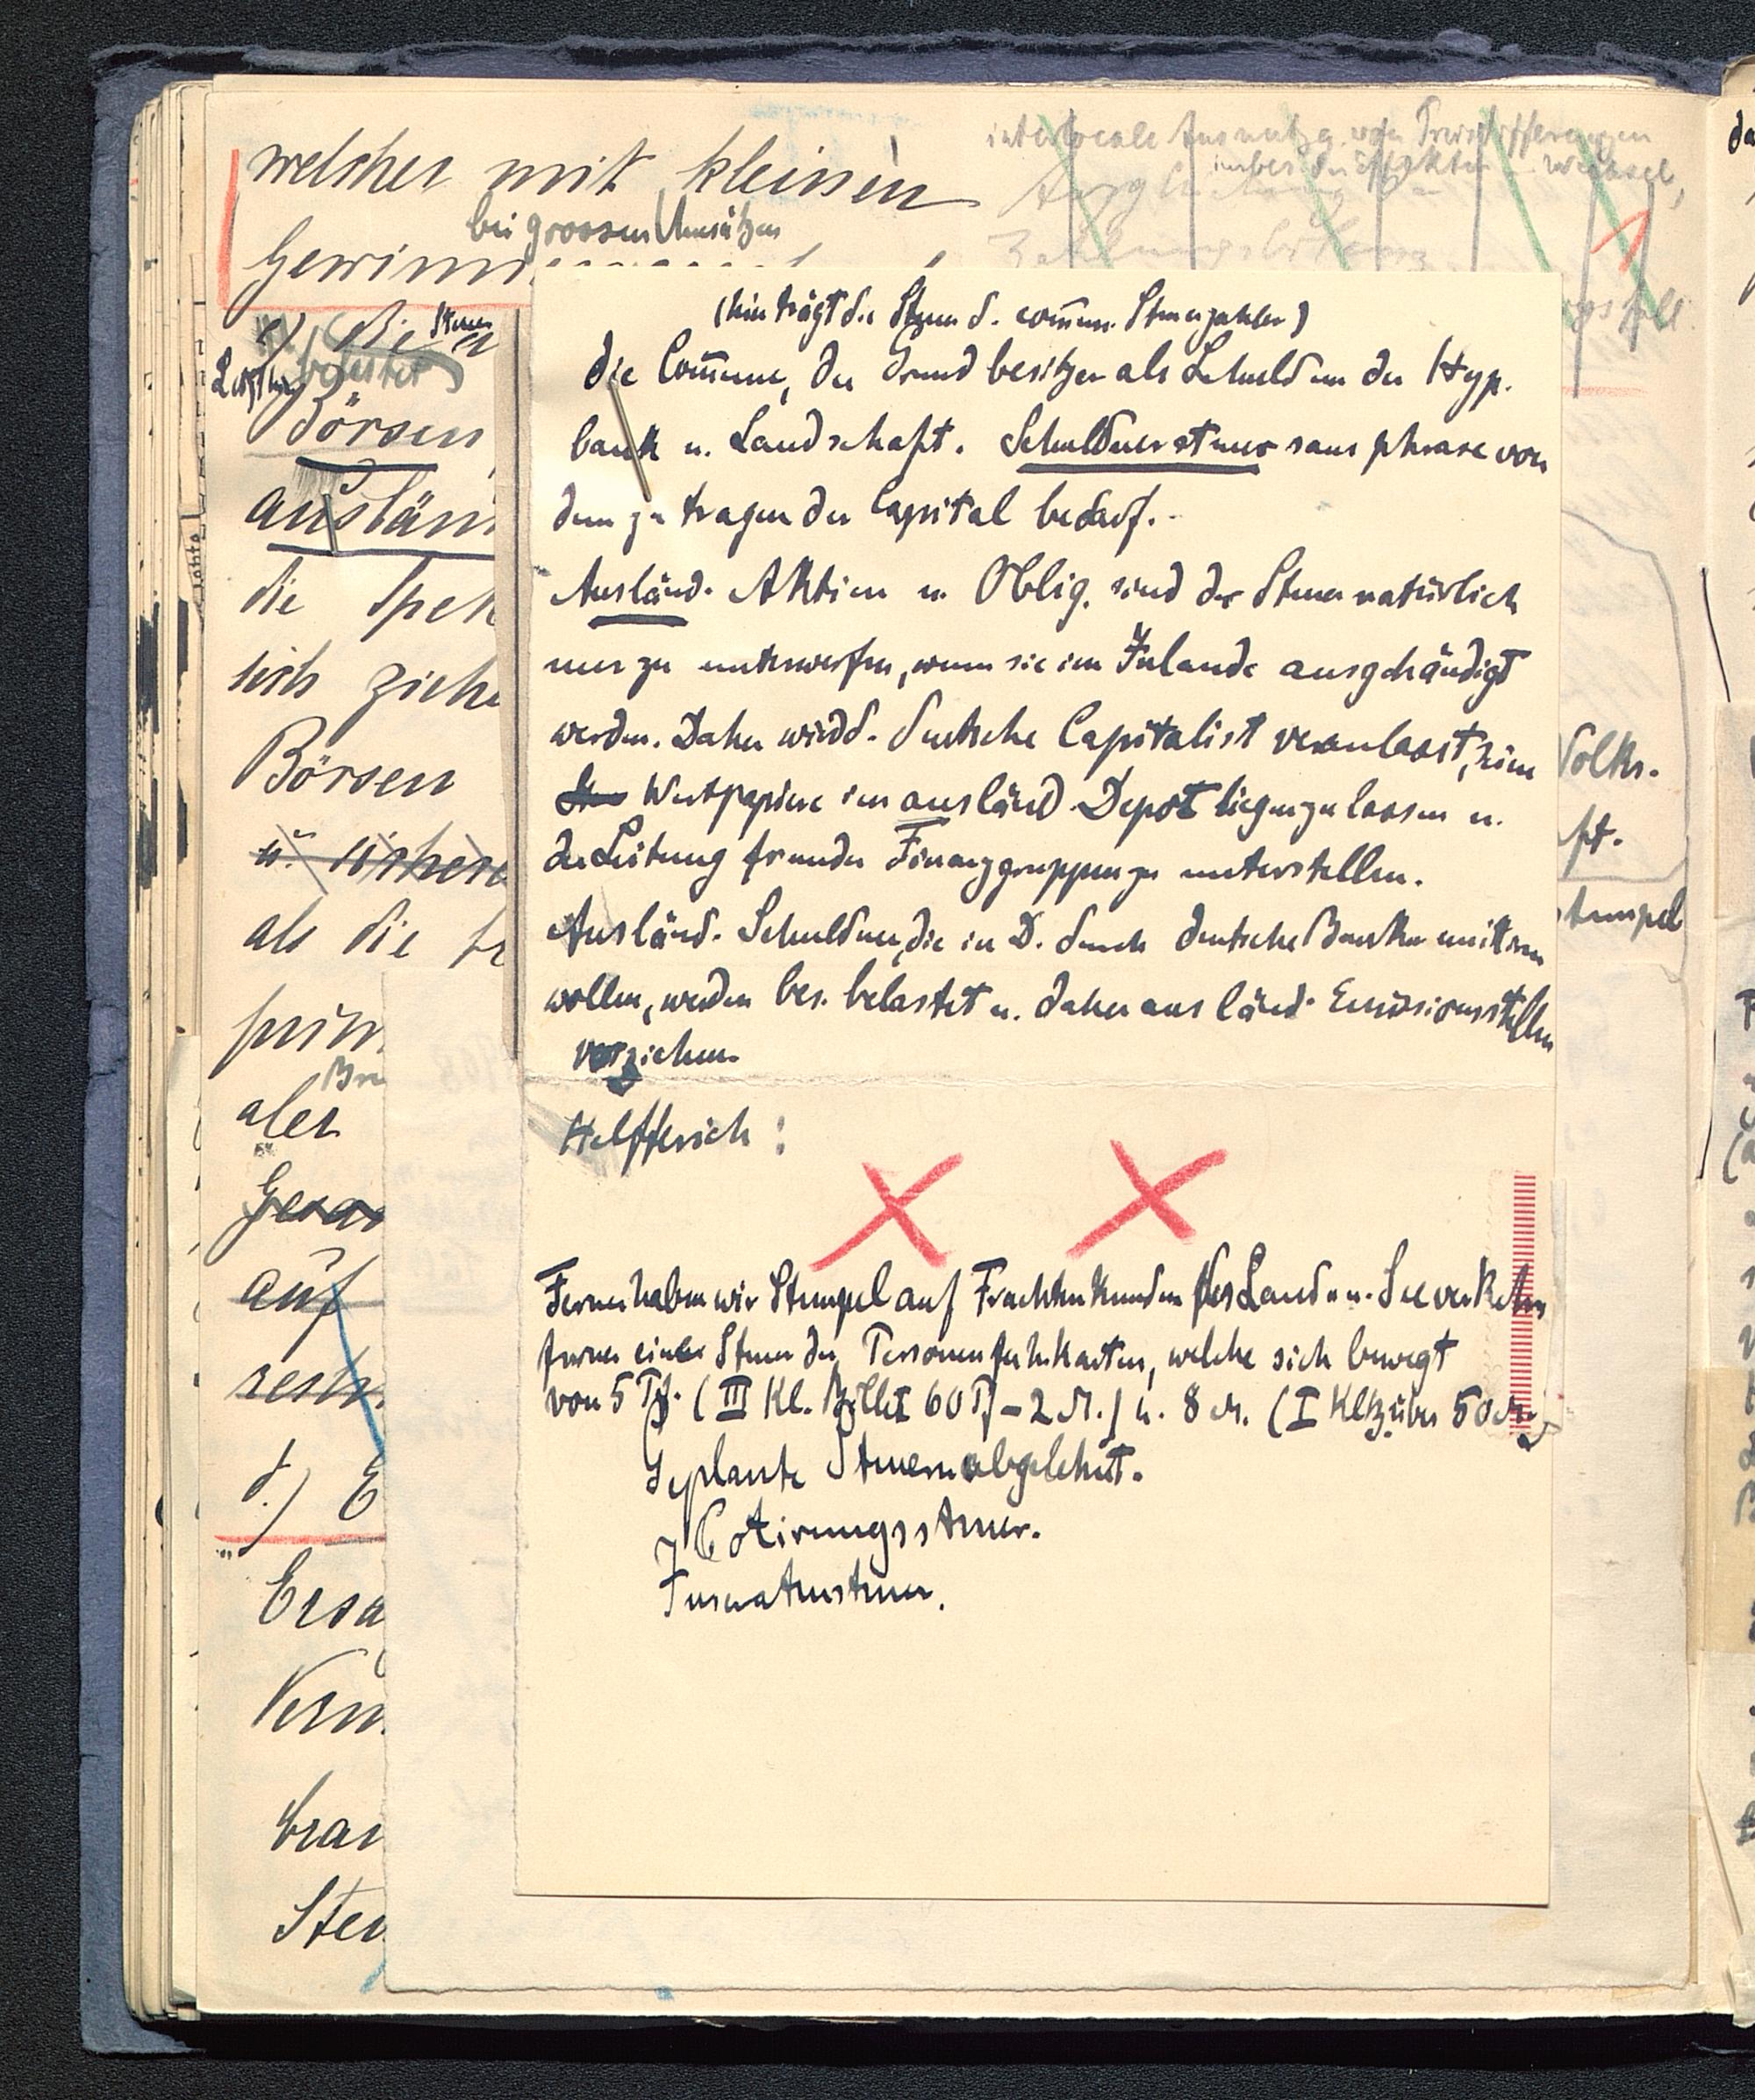 welcher mit kleinen
bei grossen Umsätzen
Gewinn
interlocale Ausnutzg. von Preisdifferenzen
insbes. in Effekten - Wechsel,
c) Die
Steuer
belastet
Börsen
auslän
die Spek
sich ziehe
Börsen
u. sichere
als die fr
prün
aler
Gesa
auf
restr
d.) E
Ersa
Kern
brau
Steu
(hier trägt die Steuer d. comm. Steuerzahler)
die Com̅une, der Grundbesitzer als Schuldner der Hyp.
bank u. Landschaft. Schuldnersteuer sans phrase von
dem zu tragenden Capitalbedarf.
Ausländ. Aktien u. Oblig. sind der Steuer natürlich
nur zu unterwerfen, wenn sie im Inlande ausgehändigt
werden. Daher wird d. deutsche Capitalist veranlasst, seine
Wertpapiere im ausländ Depot liegen zu lassen u.
der Leitung fremder Finanzgruppen zu unterstellen.
Ausländ. Schuldner, die in D. durch deutsche Banken emittiren
wollen, werden bes. belastet u. daher ausländ. Emissionsstellen
vorziehen.
Helfferich:
Ferner haben wir Stempel auf Frachturkunden des Land- u. Seeverkehrs
ferner eine Steuer der Personenfahrkarten, welche sich bewegt
von 5 Pf. (III Kl. Billet 60 Pf - 2 M.) u. 8 M. (I Kl. über 50 M.)
Geplante Steuern abgelehnt.
Cotirungssteuer.
Inseratensteuer.
Volks.
ft.
stempel